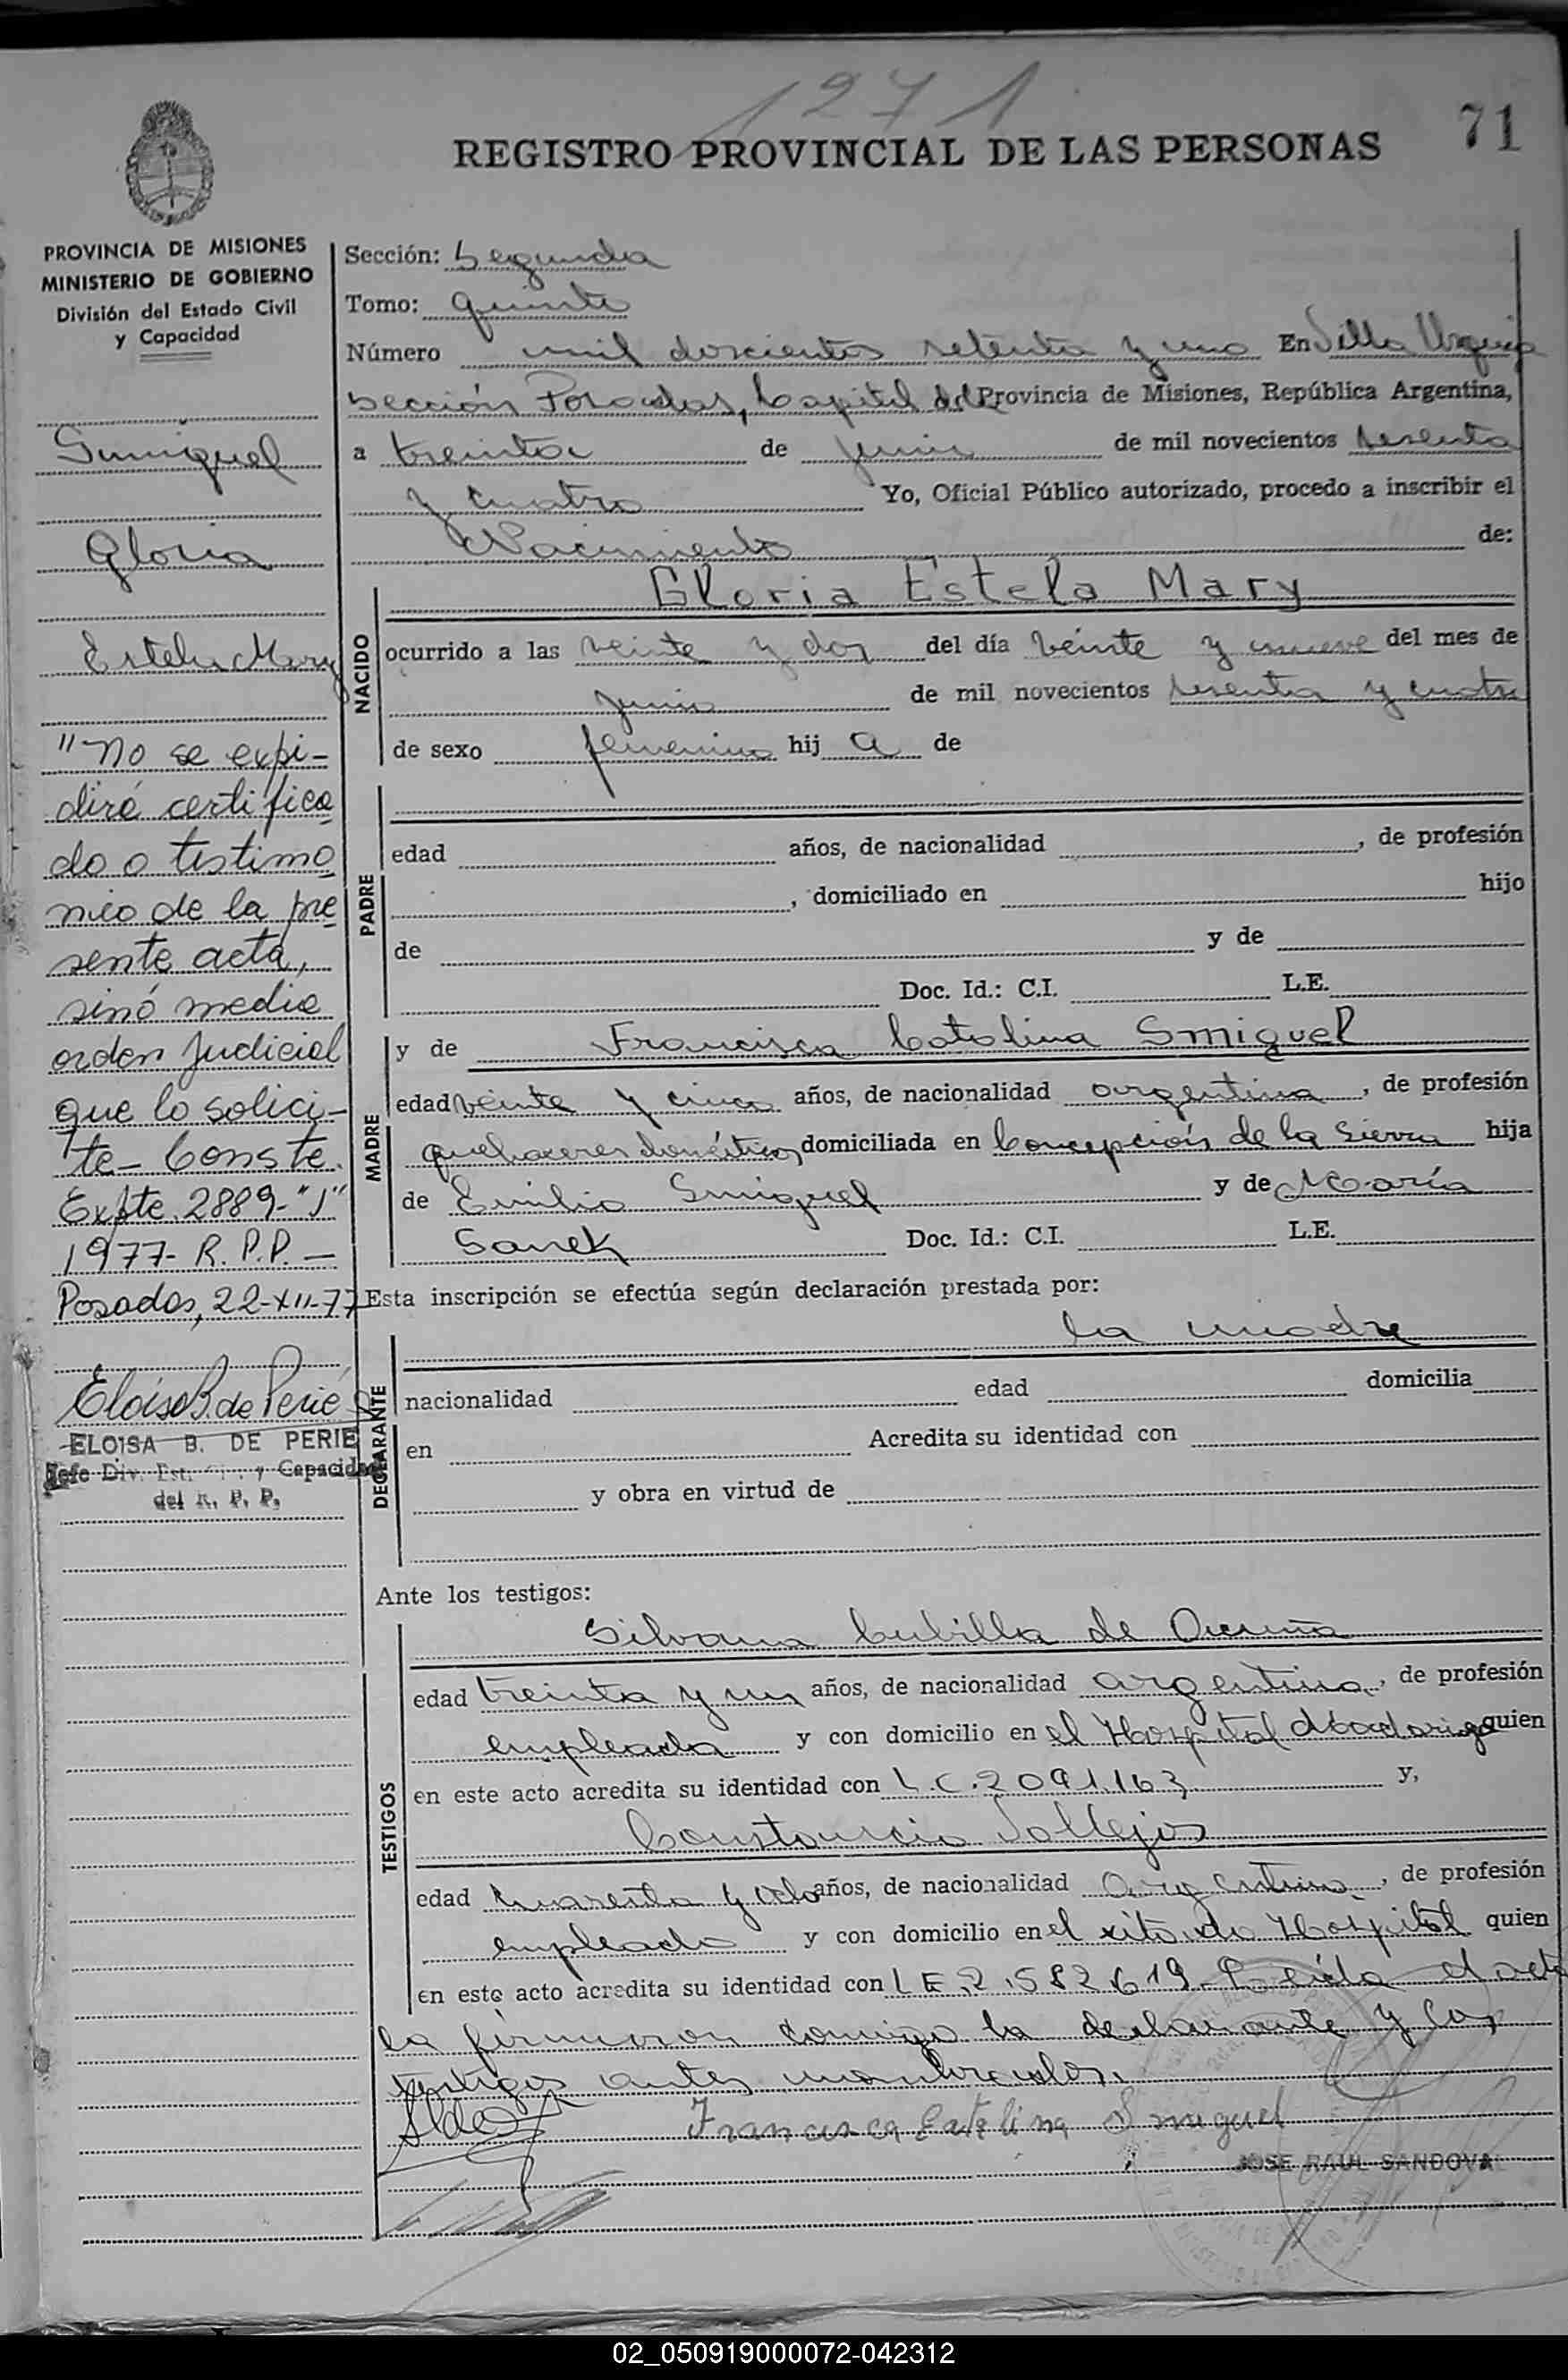 1271
71
REGISTRO PROVINCIAL DE LAS PERSONAS
PROVINCIA DE MISIONES
MINISTERIO DE GOBIERNO
División del Estado Civil
y Capacidad
Smiguel
Gloria
Estela Mary
"No se expi-
dirá certifica
do o testimo
nio de la pre
sente acta,
sinó media
orden Judicial
que lo solici-
te- Conste.
Expte. 2889-"J"
1977- R.P.P.-
Posadas, 22-XII-77
Eloisa B. de Perié
ELOISA B. DE PERIE
Jefe Div. Est. Civ. y Capacidad
del R. P. P.
Sección: Segunda
Tomo: quinto
Número mil doscientos setenta y uno En Villa Urquiza
Sección Posadas, Capital de la Provincia de Misiones, República Argentina,
a treinta de junio de mil novecientos sesenta
y cuatro Yo, Oficial Público autorizado, procedo a inscribir el
Nacimiento de:
NACIDO
Gloria Estela Mary
ocurrido a las veinte y dos del día veinte y nueve del mes de
junio de mil novecientos sesenta y cuatro
de sexo femenino hij a de
PADRE
edad años, de nacionalidad , de profesión
, domiciliado en hijo
de y de
Doc. Id.: C.I. L.E.
MADRE
y de Francisca Catalina Smiguel
edad veinte y cinco años, de nacionalidad argentina, de profesión
quehaceres domésticos, domiciliada en Concepción de la Sierra hija
de Emilio Smiguel y de María
Sanek Doc. Id.: C.I. L.E.
Esta inscripción se efectúa según declaración prestada por:
DECLARANTE
la madre
nacionalidad edad domicilia
en Acredita su identidad con
y obra en virtud de
Ante los testigos:
TESTIGOS
Silvana Cubilla de Acuña
edad treinta y un años, de nacionalidad argentina, de profesión
empleada y con domicilio en el Hospital Madariaga quien
en este acto acredita su identidad con L.C. 2091.163 y,
Constancio Vallejos
edad cuarenta y ocho años, de nacionalidad Argentina, de profesión
empleado y con domicilio en el citado Hospital quien
en este acto acredita su identidad con LE 2.582619. Leída el acta
la firmaron conmigo la declarante y los
testigos antes nombrados.
Francisca Catalina Smiguel
JOSE RAUL SANDOVAL
02_050919000072-042312